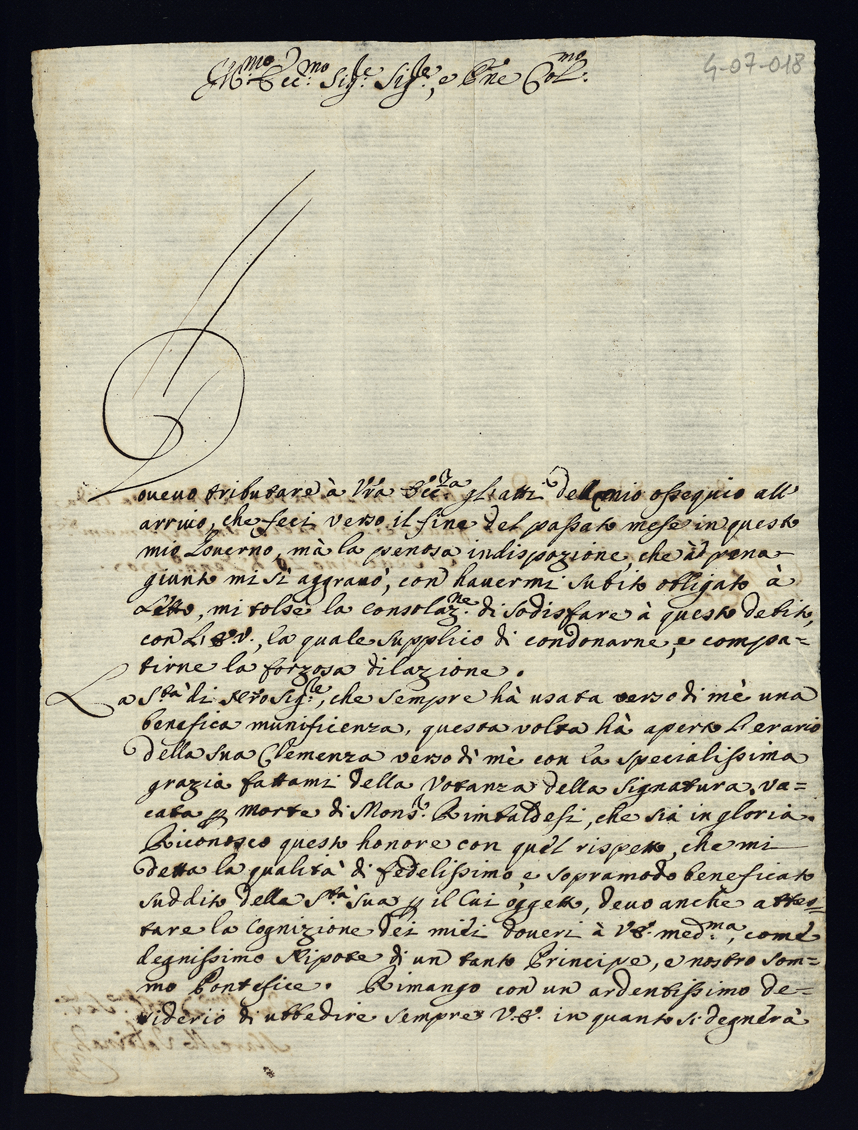 4-07-018
Ill.mo Ecc.mo Sig.re Sig.re, e Pne Col.mo
Dovevo tributare à Vrã Ecc.za gli atti del mio ossequio all'
arrivo, che feci verso il fine del passato mese in questo
mio Governo, mà la penosa indisposizione che àd pena
giunto mi si aggravò, con havermi subito obligato à
Letto, mi tolse la consolaz.ne di sodisfare à questo debito,
con L'E.V., la quale supplico di condonarne, e compa=
tirne la forzosa dilazione.
La S.tà di Nrõ Sig.re, che sempre hà usata verso di mè una
benefica munificenza, questa volta hà aperto l'erario
della sua Clemenza verso di mè con la specialissima
grazia fattami della Votanza della Signatura, va=
cata p morte di Mons.r Rimbaldesi, che sia in gloria.
Riconosco questo honore con quel rispetto, che mi
detta la qualità di fedelissimo e sopramodo beneficato
suddito della S.tà Sua p il cui oggetto, devo anche attes=
tare la Cognizione dei miei doveri à V.E. med.ma, come
degnissimo Nipote di un tanto Principe, e nostro Som=
mo Pontefice. Rimango con un ardentissimo de=
siderio di ubbedire sempre V.E. in quanto si degnerà